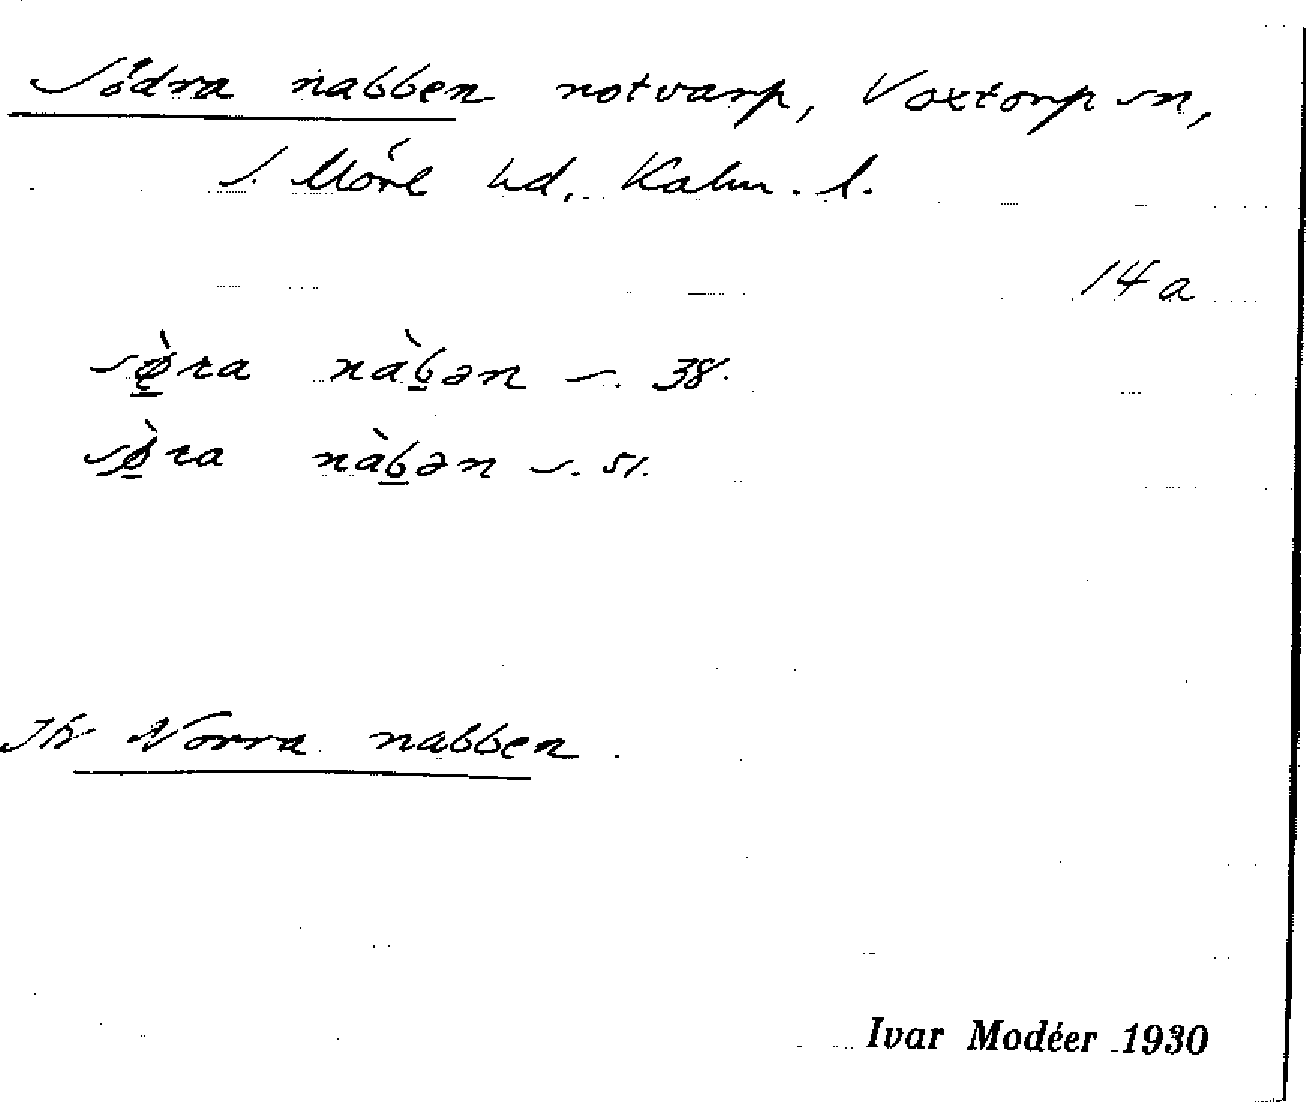 Södra nabben notvarp, Voxtorp sn,
S. Möre hd, Kalm. l.
14 a
sø̀ra nàbən s. 38.
sø̀ra nàbən s. 51.
Jfr Norra nabben.
Ivar Modéer 1930